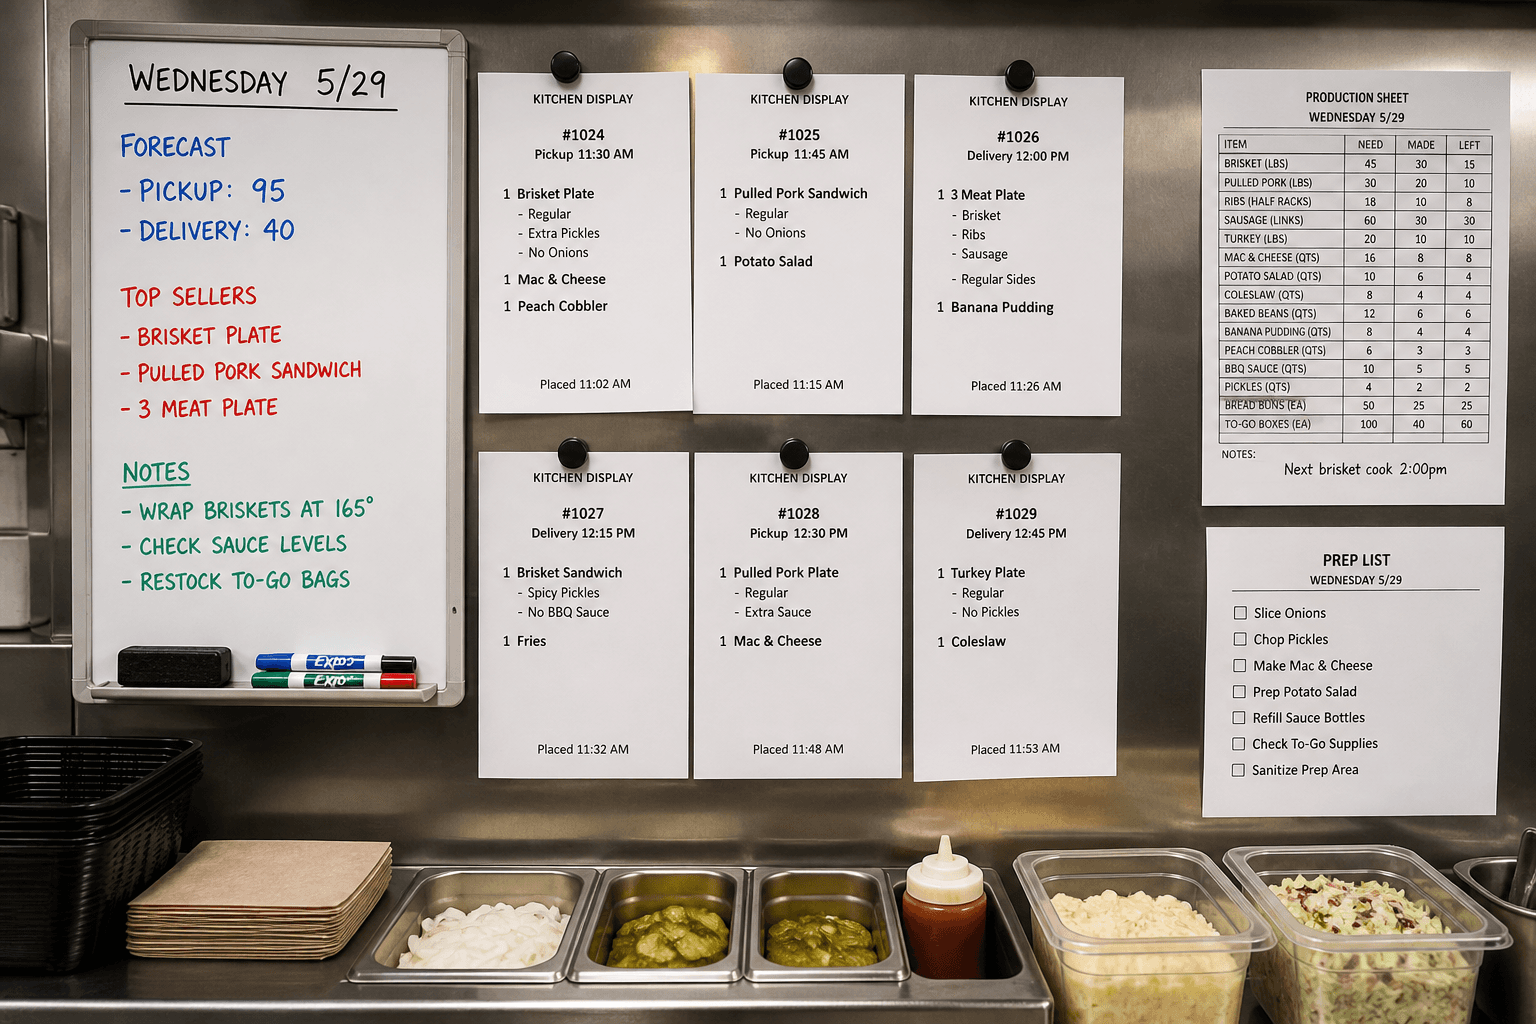 WEDNESDAY 5/29
FORECAST
- PICKUP: 95
- DELIVERY: 40
TOP SELLERS
- BRISKET PLATE
- PULLED PORK SANDWICH
- 3 MEAT PLATE
NOTES
- WRAP BRISKETS AT 165°
- CHECK SAUCE LEVELS
- RESTOCK TO-GO BAGS
KITCHEN DISPLAY
#1024
Pickup 11:30 AM
1 Brisket Plate
- Regular
- Extra Pickles
- No Onions
1 Mac & Cheese
1 Peach Cobbler
Placed 11:02 AM
KITCHEN DISPLAY
#1025
Pickup 11:45 AM
1 Pulled Pork Sandwich
- Regular
- No Onions
1 Potato Salad
Placed 11:15 AM
KITCHEN DISPLAY
#1026
Delivery 12:00 PM
1 3 Meat Plate
- Brisket
- Ribs
- Sausage
- Regular Sides
1 Banana Pudding
Placed 11:26 AM
KITCHEN DISPLAY
#1027
Delivery 12:15 PM
1 Brisket Sandwich
- Spicy Pickles
- No BBQ Sauce
1 Fries
Placed 11:32 AM
KITCHEN DISPLAY
#1028
Pickup 12:30 PM
1 Pulled Pork Plate
- Regular
- Extra Sauce
1 Mac & Cheese
Placed 11:48 AM
KITCHEN DISPLAY
#1029
Delivery 12:45 PM
1 Turkey Plate
- Regular
- No Pickles
1 Coleslaw
Placed 11:53 AM
PRODUCTION SHEET
WEDNESDAY 5/29
ITEM NEED MADE LEFT
BRISKET (LBS) 45 30 15
PULLED PORK (LBS) 30 20 10
RIBS (HALF RACKS) 18 10 8
SAUSAGE (LINKS) 60 30 30
TURKEY (LBS) 20 10 10
MAC & CHEESE (QTS) 16 8 8
POTATO SALAD (QTS) 10 6 4
COLESLAW (QTS) 8 4 4
BAKED BEANS (QTS) 12 6 6
BANANA PUDDING (QTS) 8 4 4
PEACH COBBLER (QTS) 6 3 3
BBQ SAUCE (QTS) 10 5 5
PICKLES (QTS) 4 2 2
BREAD BUNS (EA) 50 25 25
TO-GO BOXES (EA) 100 40 60
NOTES:
Next brisket cook 2:00pm
PREP LIST
WEDNESDAY 5/29
Slice Onions
Chop Pickles
Make Mac & Cheese
Prep Potato Salad
Refill Sauce Bottles
Check To-Go Supplies
Sanitize Prep Area